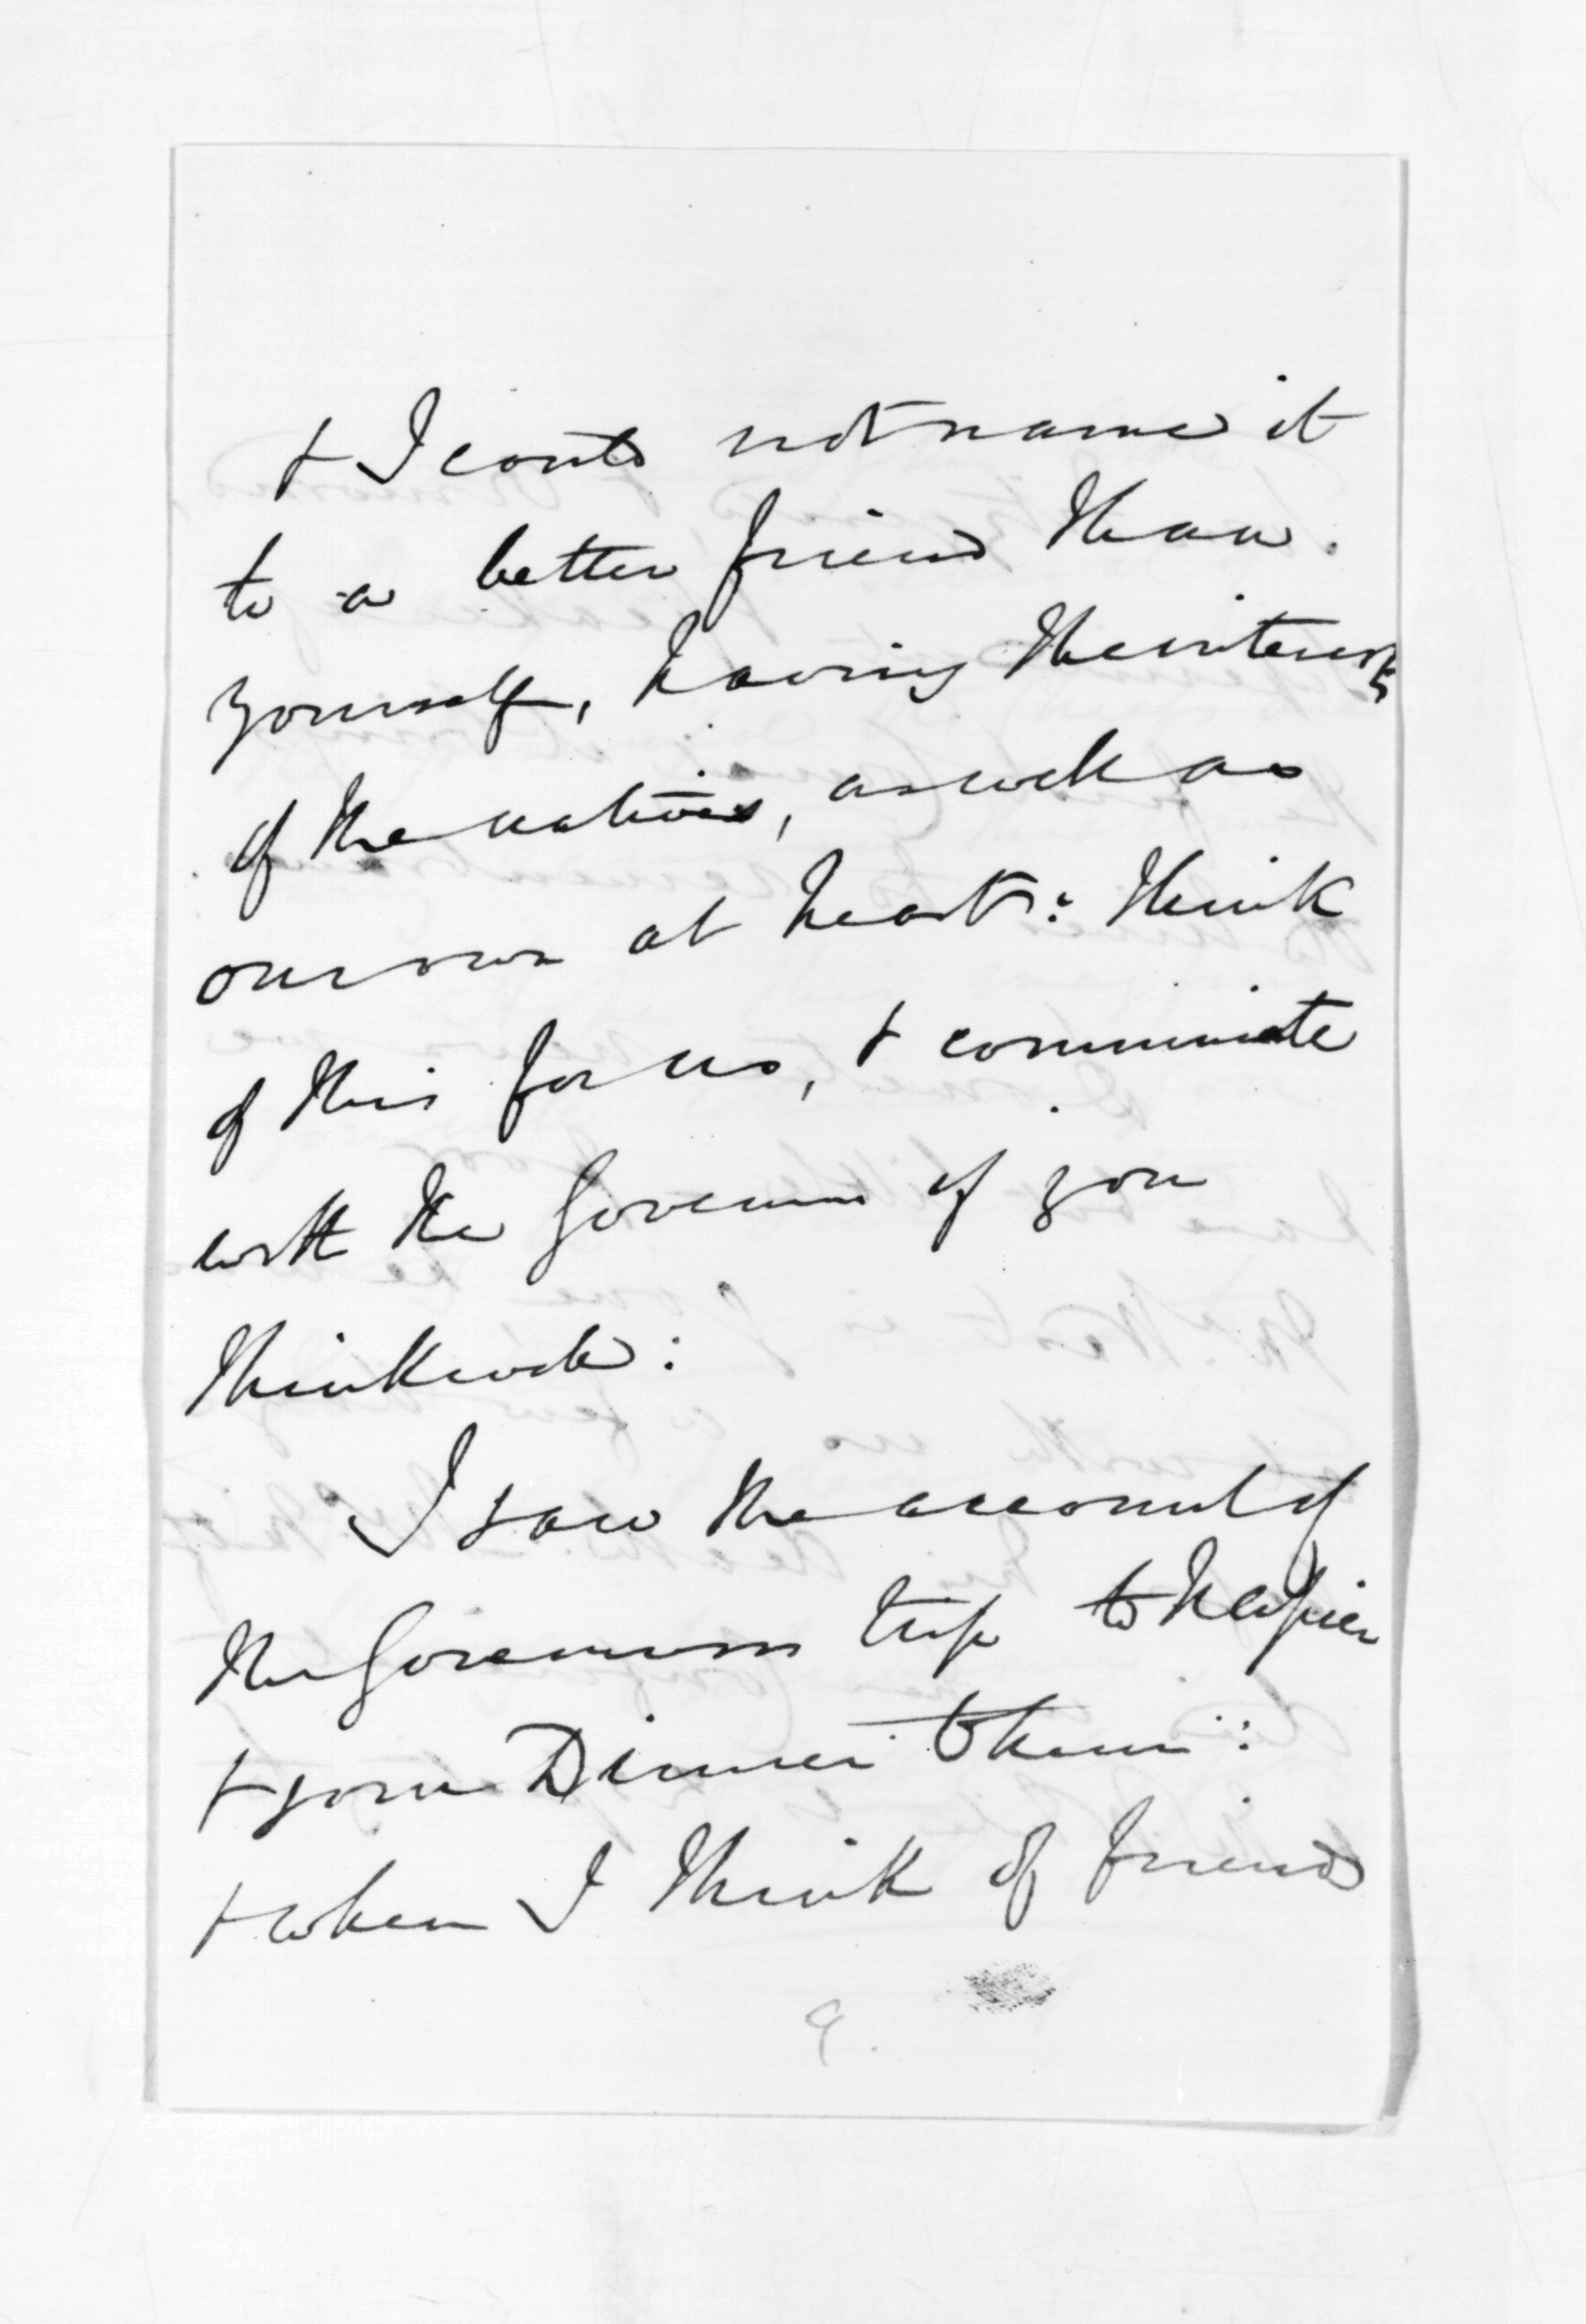 & I could not name it
to a better friend than
yourself, having the interests
of the natives, as well as
our own at heart: think
of this for us, &
with the Governor if you
think well:
I saw the account of
the Governors trip to Napier
& your Dinner to him:
& when I think of friends
9.